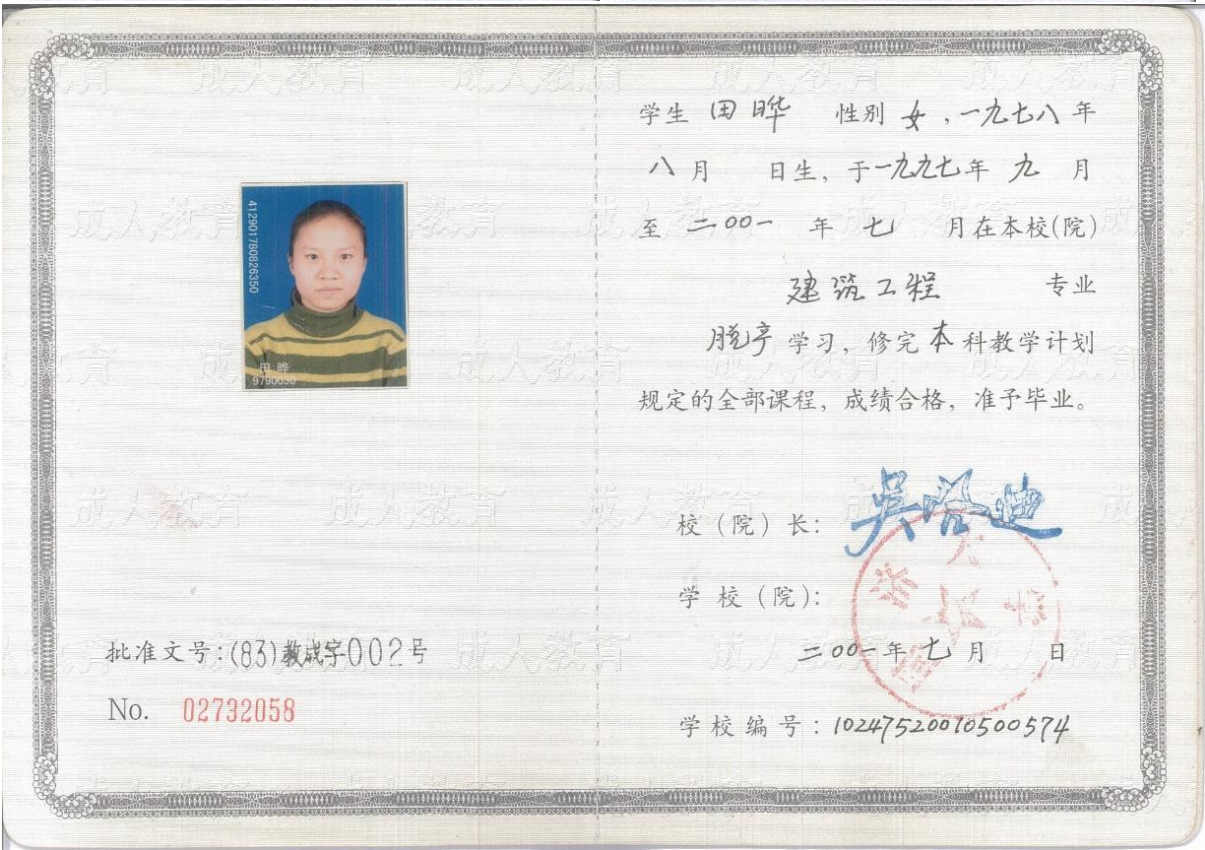 412901780826350
田晔
9790050
批准文号:(83)教成字002号
No. 02732058
学生 田晔 性别 女,一九七八年
八月 日生,于一九九七年 九 月
至 二00一 年 七 月在本校(院)
建筑工程 专业
脱产 学习,修完 本 科教学计划
规定的全部课程,成绩合格,准予毕业。
校(院)长: 吴启迪
学校(院):
二00一年七月 日
学校编号:10247520010500574
成人教育